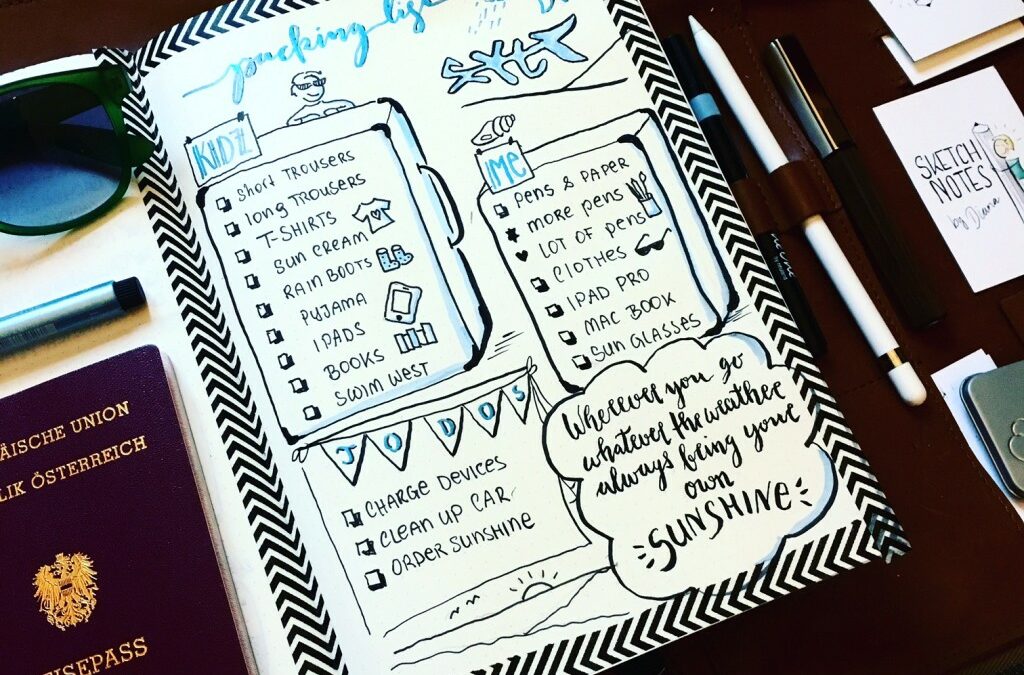 packing list
SYLT
KIDZ
SHORT TROUSERS
LONG TROUSERS
T-SHIRTS
SUN CREAM
RAIN BOOTS
PYJAMA
IPADS
BOOKS
SWIM WEST
ME
PENS & PAPER
MORE PENS
LOT OF PENS
CLOTHES
IPAD PRO
MAC BOOK
SUN GLASSES
TODOS
CHARGE DEVICES
CLEAN UP CAR
ORDER SUNSHINE
Wherever you go
whatever the weather
always being your
own
SUNSHINE
ÄISCHE UNION
LIK ÖSTERREICH
EISEPASS
SKETCH
NOTES
by Diana